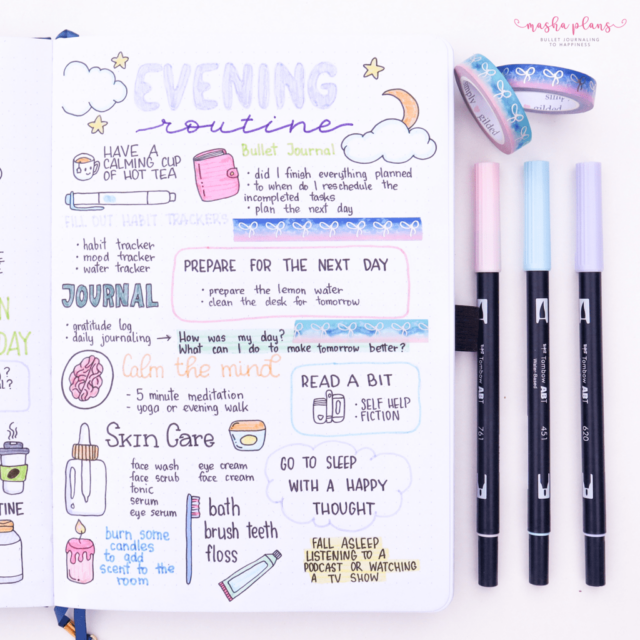 masha plans
BULLET JOURNALING
TO HAPPINESS
EVENING
routine
HAVE A
CALMING CUP
OF HOT TEA
Bullet Journal
• did I finish everything planned
• to when do I reschedule the
incompleted tasks
• plan the next day
FILL OUT HABIT TRACKERS
• habit tracker
• mood tracker
• water tracker
PREPARE FOR THE NEXT DAY
• prepare the lemon water
• clean the desk for tomorrow
JOURNAL
• gratitude log
• daily journaling → How was my day?
What can I do to make tomorrow better?
Calm the mind
- 5 minute meditation
- yoga or evening walk
READ A BIT
• SELF HELP
• FICTION
Skin Care
face wash
face scrub
tonic
serum
eye serum
eye cream
face cream
GO TO SLEEP
WITH A HAPPY
THOUGHT
bath
brush teeth
floss
burn some
candles
to add
scent to the
room
FALL ASLEEP
LISTENING TO A
PODCAST OR WATCHING
A TV SHOW
DAY
simply
gilded
gilded
Tombow ABT
761
Tombow ABT
451
Tombow ABT
620